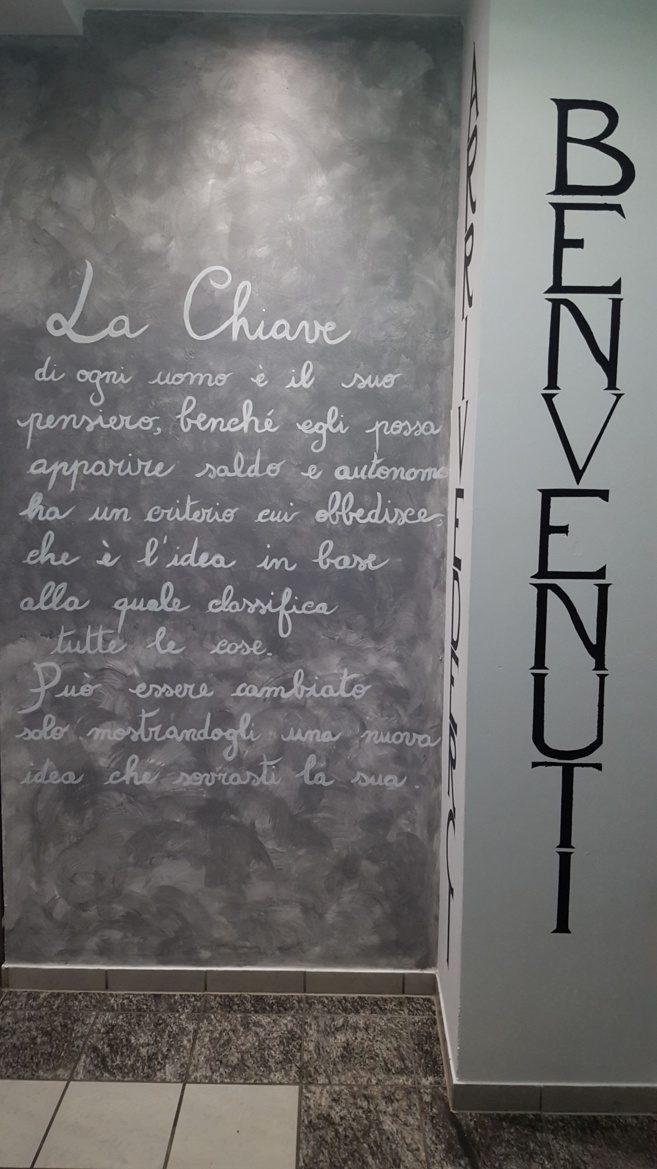 La Chiave
di ogni uomo è il suo
pensiero, benché egli possa
apparire saldo e autonomo
ha un criterio cui obbedisce,
che è l'idea in base
alla quale classifica
tutte le cose.
Può essere cambiato
solo mostrandogli una nuova
idea che sovrasti la sua
ARRIVEDERCI
BENVENUTI